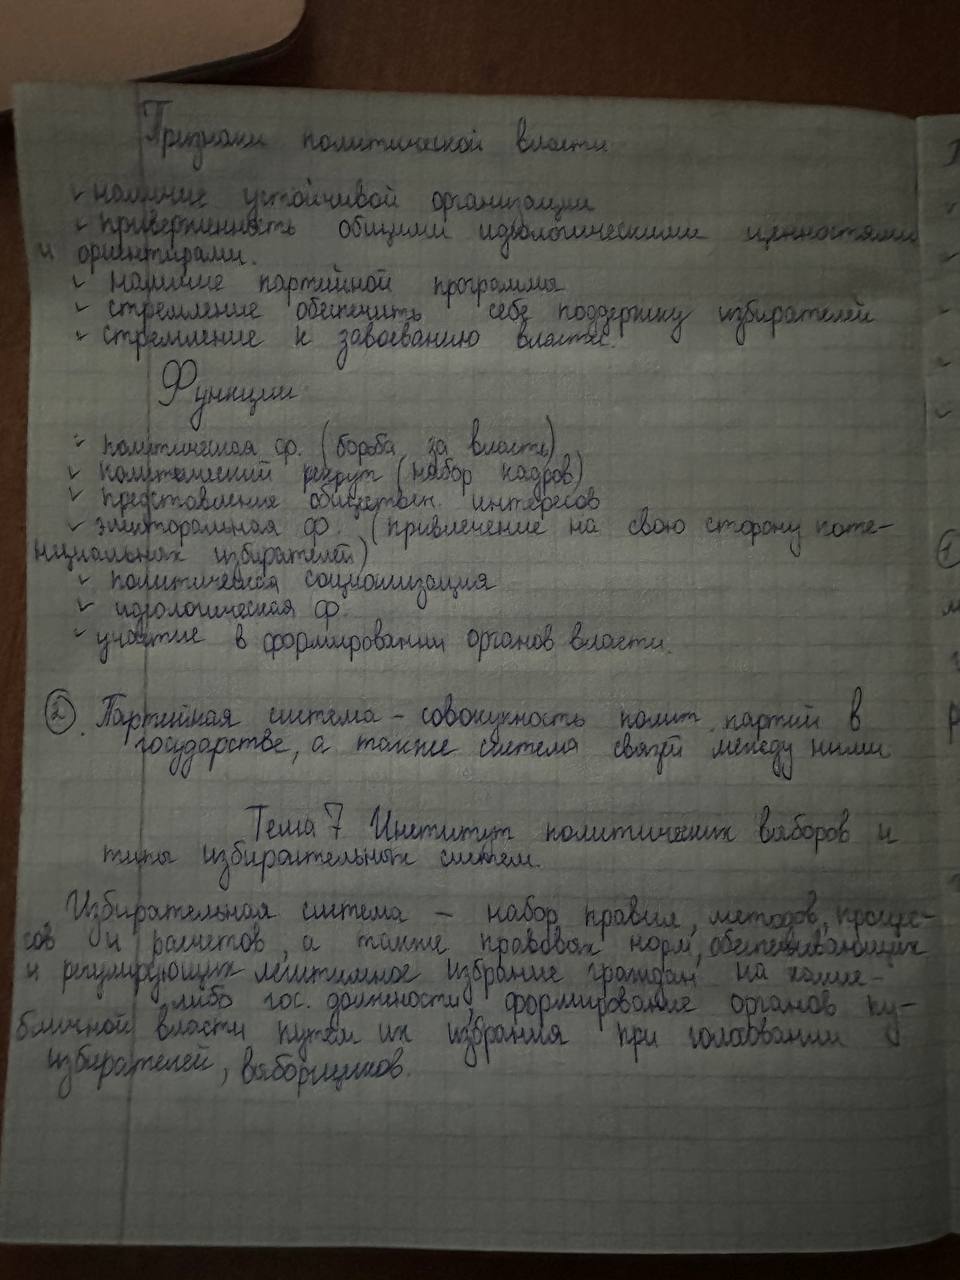 Признаки политической власти
✓ наличие устойчивой организации
✓ приверженность общими идеологическими ценностями
и ориентирами.
✓ наличие партийной программы
✓ стремление обеспечить себе поддержку избирателей
✓ стремление к завоеванию власти.
Функции
✓ политическая ф. (борьба за власть)
✓ политический рекрут (набор кадров)
✓ представления обществен. интересов
✓ электоральная ф. (привлечение на свою сторону поте-
нциальных избирателей)
✓ политическая социализация
✓ идеологическая ф.
✓ участие в формировании органов власти.
2. Партийная система – совокупность полит. партий в
государстве, а также система связей между ними
Тема 7 Институт политических выборов и
типы избирательных систем.
Избирательная система – набор правил, методов, процес-
сов и расчетов, а также правовых норм, обеспечивающих
и регулирующих легитимное избрание граждан на какие-
либо гос. должности, формирование органов пу-
бличной власти путем их избрания при голосовании
избирателей, выборщиков.
1